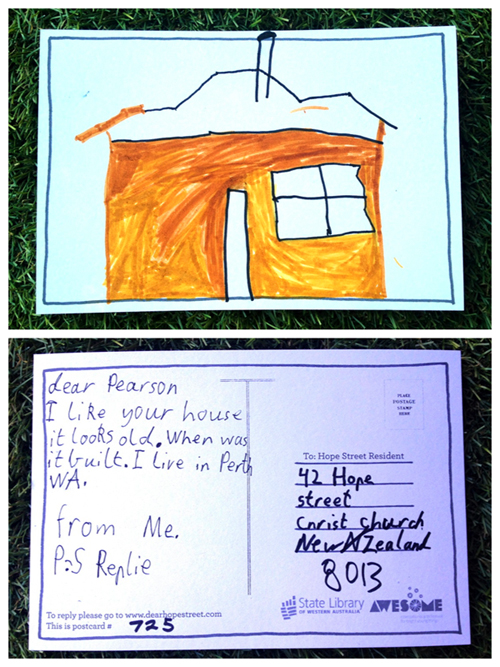 dear Pearson
I like your house
it looks old. When was
it built. I live in Perth
WA.
from Me.
P.S Replie
To reply please go to www.dearhopestreet.com
This is postcard # 725
PLACE
POSTAGE
STAMP
HERE
To: Hope Street Resident
42 Hope
street
Christ church
New Zealand
8013
State Library
OF WESTERN AUSTRALIA
AWESOME